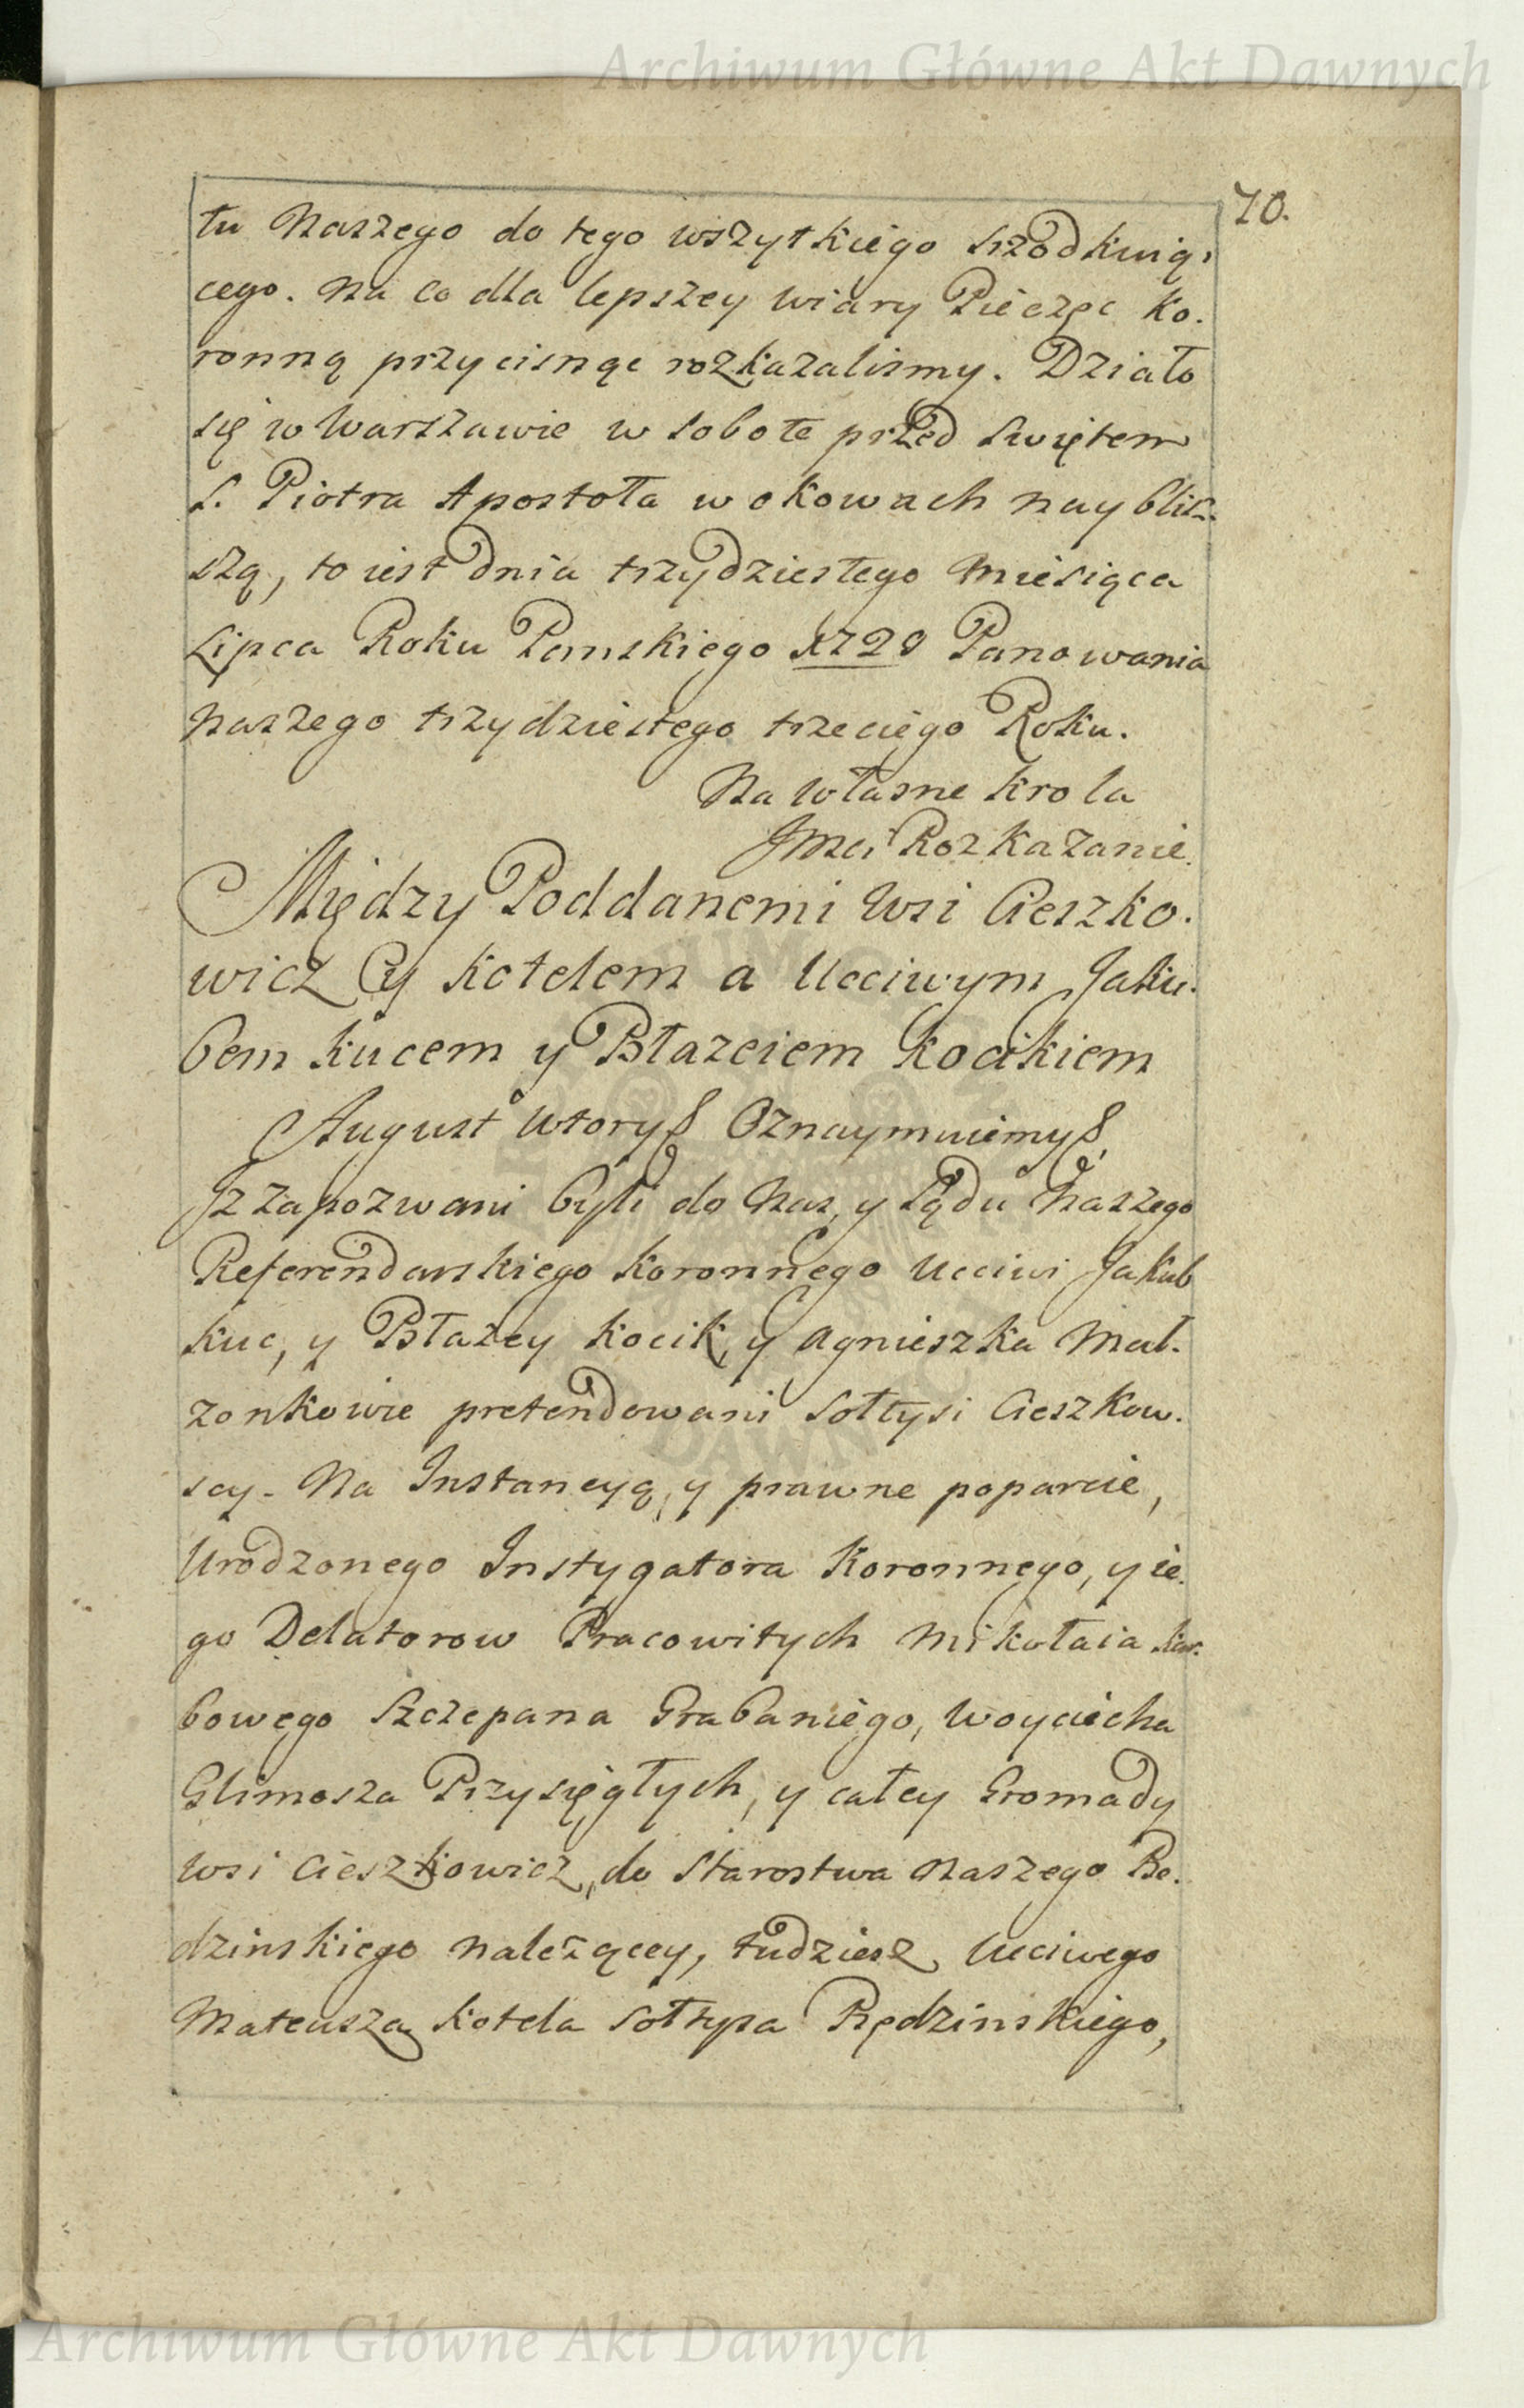 Archiwum Główne Akt Dawnych
70.
tu Naszego do tego wszytkiego srzodkuią,
cego. Na co dla lepszey wiary Pieczęc Ko.
ronną przycisnąc rozkazalismy. Działo
się w Warszawie w sobotę przed Swiętem
S. Piotra Apostoła w okowach nayblisz
szą, to iest Dnia trzydziestego Miesiąca
Lipca Roku Panskiego 1729 Panowania
Naszego trzydziestego trzeciego Roku.
Na własne Krola
Jmci Rozkazanie.
Między Poddanemi Wsi Cieszko.
wicz y Kotelem a Ucciwym Jaku.
bem Kucem y Błazeiem Kocikiem
August Wtory§ Oznaymuiemy§,
Jz zapozwani byli do Nas, y Sądu Naszego
Referendarskiego Koronnego Ucciwi Jakub
Kuc, y Błazey Kocik, y Agnieszka Mał.
zonkowie pretendowani Sołtysi Cieszkow.
scy. Na Instancyą, y prawne poparcie,
Urodzonego Instygatora Koronnego, y ie.
go Delatorow Pracowitych Mikołaia Kar.
bowego Szczepana Grabaniego, Woyciecha
Glimosza Przysięgłych, y całey Gromady
Wsi Cieszkowicz, do Starostwa Naszego Bę.
dzinskiego nalezącey, tudziesz Ucciwego
Mateusza Kotela Sołtysa Będzinskiego,
Archiwum Główne Akt Dawnych